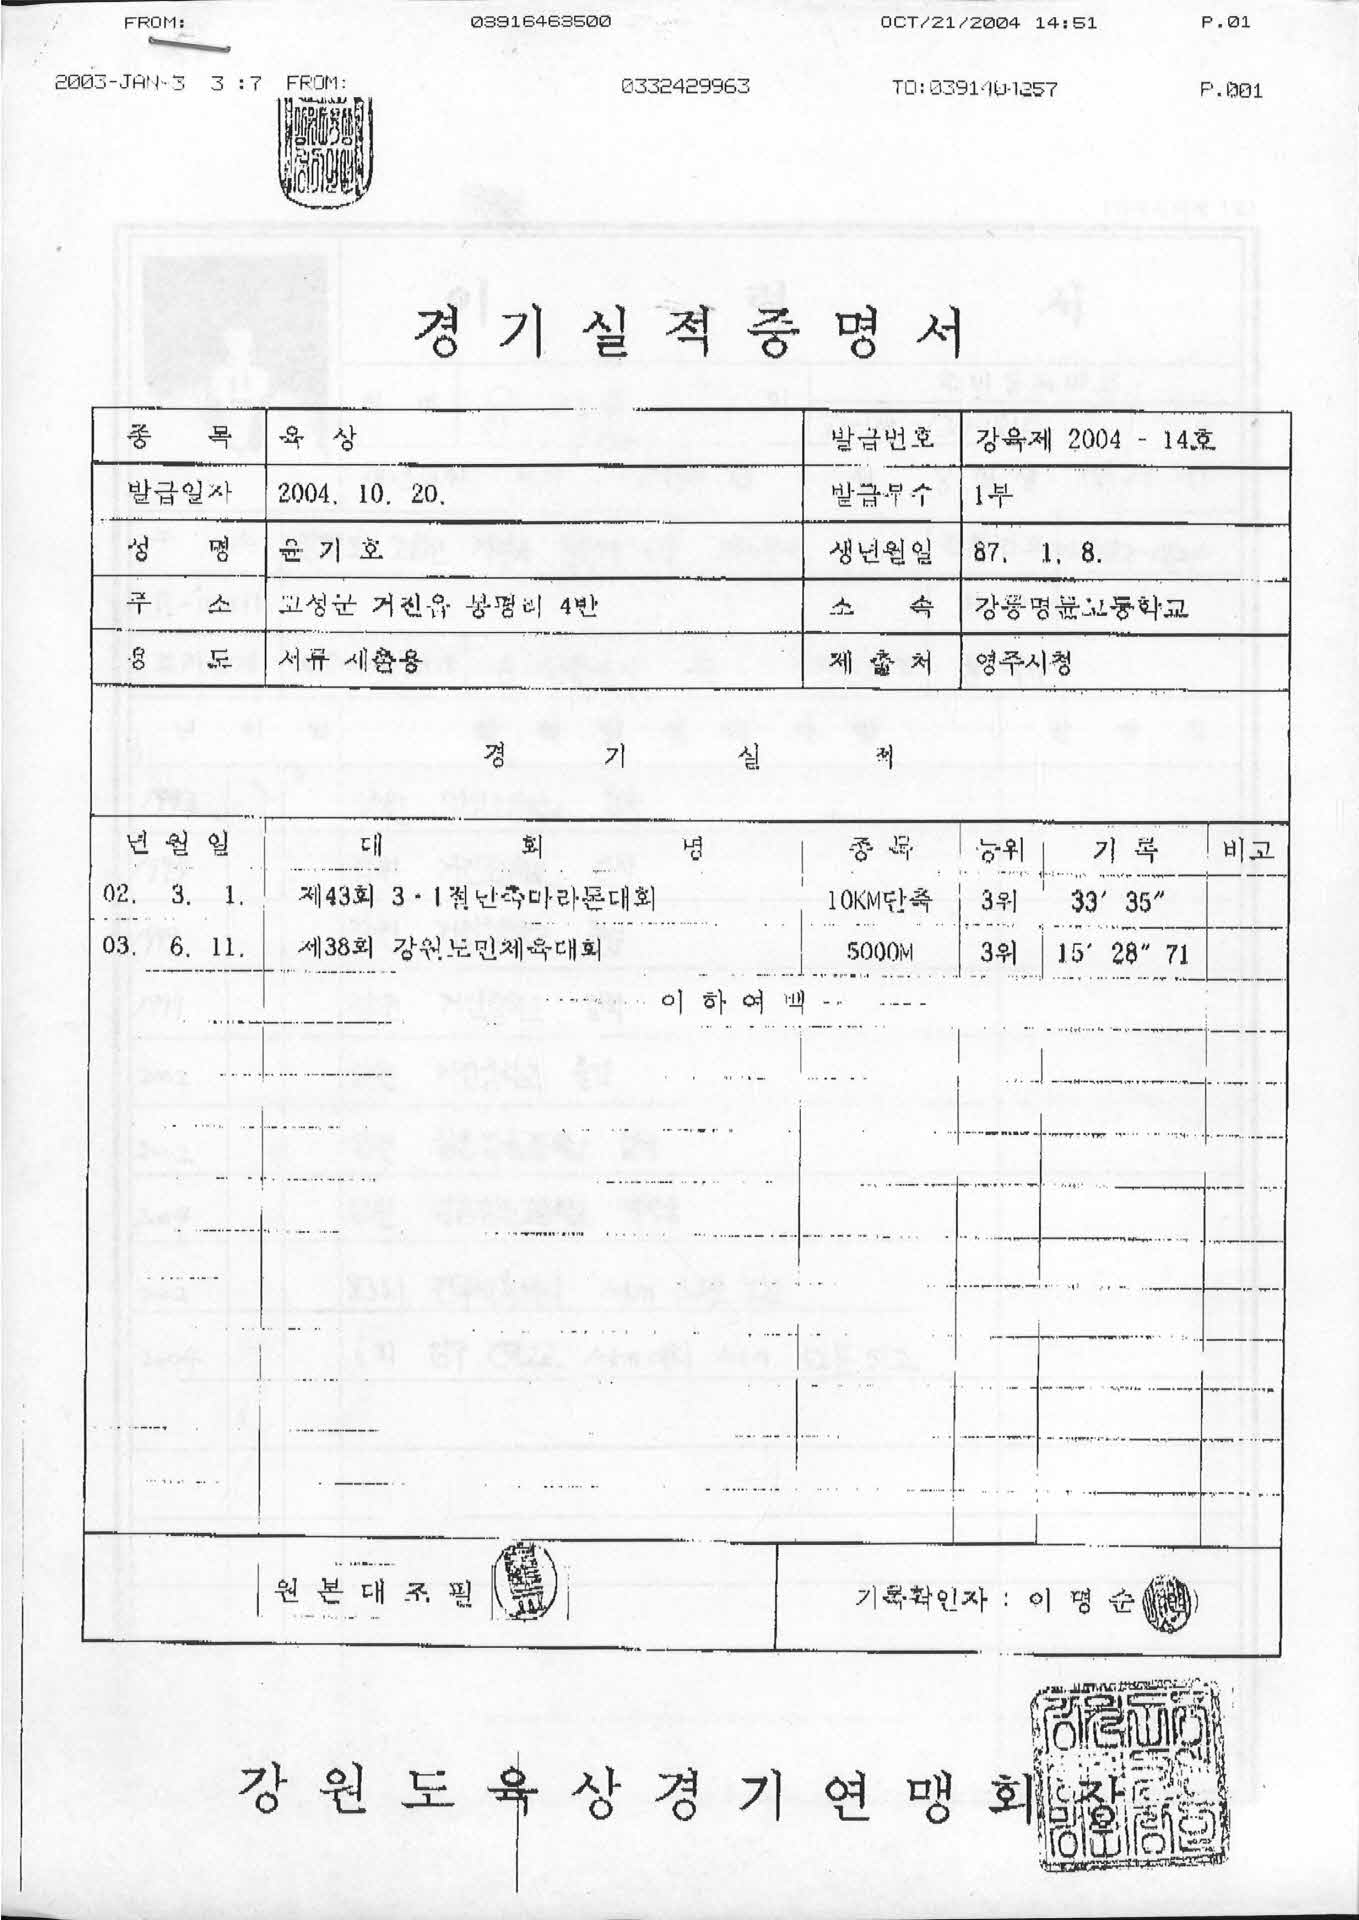 FROM: 03916463500 OCT/21/2004 14:51 P.01
2003-JAN-3 3:7 FROM: 0332429963 P.001
경기실적증명서
종 목 육 상 발급번호 강육제 2004 - 14호
발급일자 2004. 10. 20. 발급부수 1부
성 명 윤 기 호 생년월일 87. 1. 8.
주 소 고성군 거진읍 봉평리 4반 소 속 강릉명륜고등학교
용 도 서류 제출용 제 출 처 영주시청
경 기 실 적
년 월 일 대 회 명 종 목 순위 기 록 비고
02. 3. 1. 제43회 3·1절단축마라톤대회 10KM단축 3위 33′ 35″
03. 6. 11. 제38회 강원도민체육대회 5000M 3위 15′ 28″ 71
이 하 여 백
원 본 대 조 필 기록확인자 : 이 명 순
강 원 도 육 상 경 기 연 맹 회 장